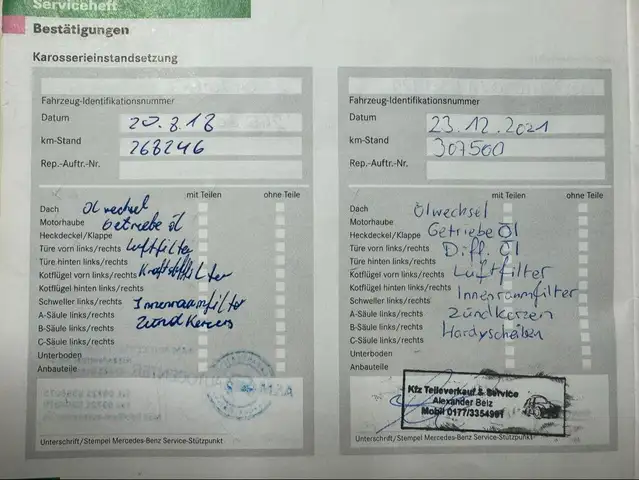 Serviceheft
Bestätigungen
Karosserieinstandsetzung
Fahrzeug-Identifikationsnummer
Datum 20.8.18
km-Stand 268246
Rep.-Auftr.-Nr.
mit Teilen ohne Teile
Dach Ölwechsel
Motorhaube Getriebe öl
Heckdeckel/Klappe
Türe vorn links/rechts Luftfilter
Türe hinten links/rechts
Kotflügel vorn links/rechts Kraftstofffilter
Kotflügel hinten links/rechts
Schweller links/rechts Innenraumfilter
A-Säule links/rechts
B-Säule links/rechts Zünd Kerzen
C-Säule links/rechts
Unterboden
Anbauteile
Unterschrift/Stempel Mercedes-Benz Service-Stützpunkt
Fahrzeug-Identifikationsnummer
Datum 23.12.2021
km-Stand 307500
Rep.-Auftr.-Nr.
mit Teilen ohne Teile
Dach Ölwechsel
Motorhaube
Heckdeckel/Klappe Getriebe Öl
Türe vorn links/rechts Diff. Öl
Türe hinten links/rechts
Kotflügel vorn links/rechts Luftfilter
Kotflügel hinten links/rechts
Schweller links/rechts Innenraumfilter
A-Säule links/rechts Zündkerzen
B-Säule links/rechts Hardyscheiben
C-Säule links/rechts
Unterboden
Anbauteile
Kfz Teileverkauf & Service
Alexander Belz
Mobil 0177/3354961
Unterschrift/Stempel Mercedes-Benz Service-Stützpunkt